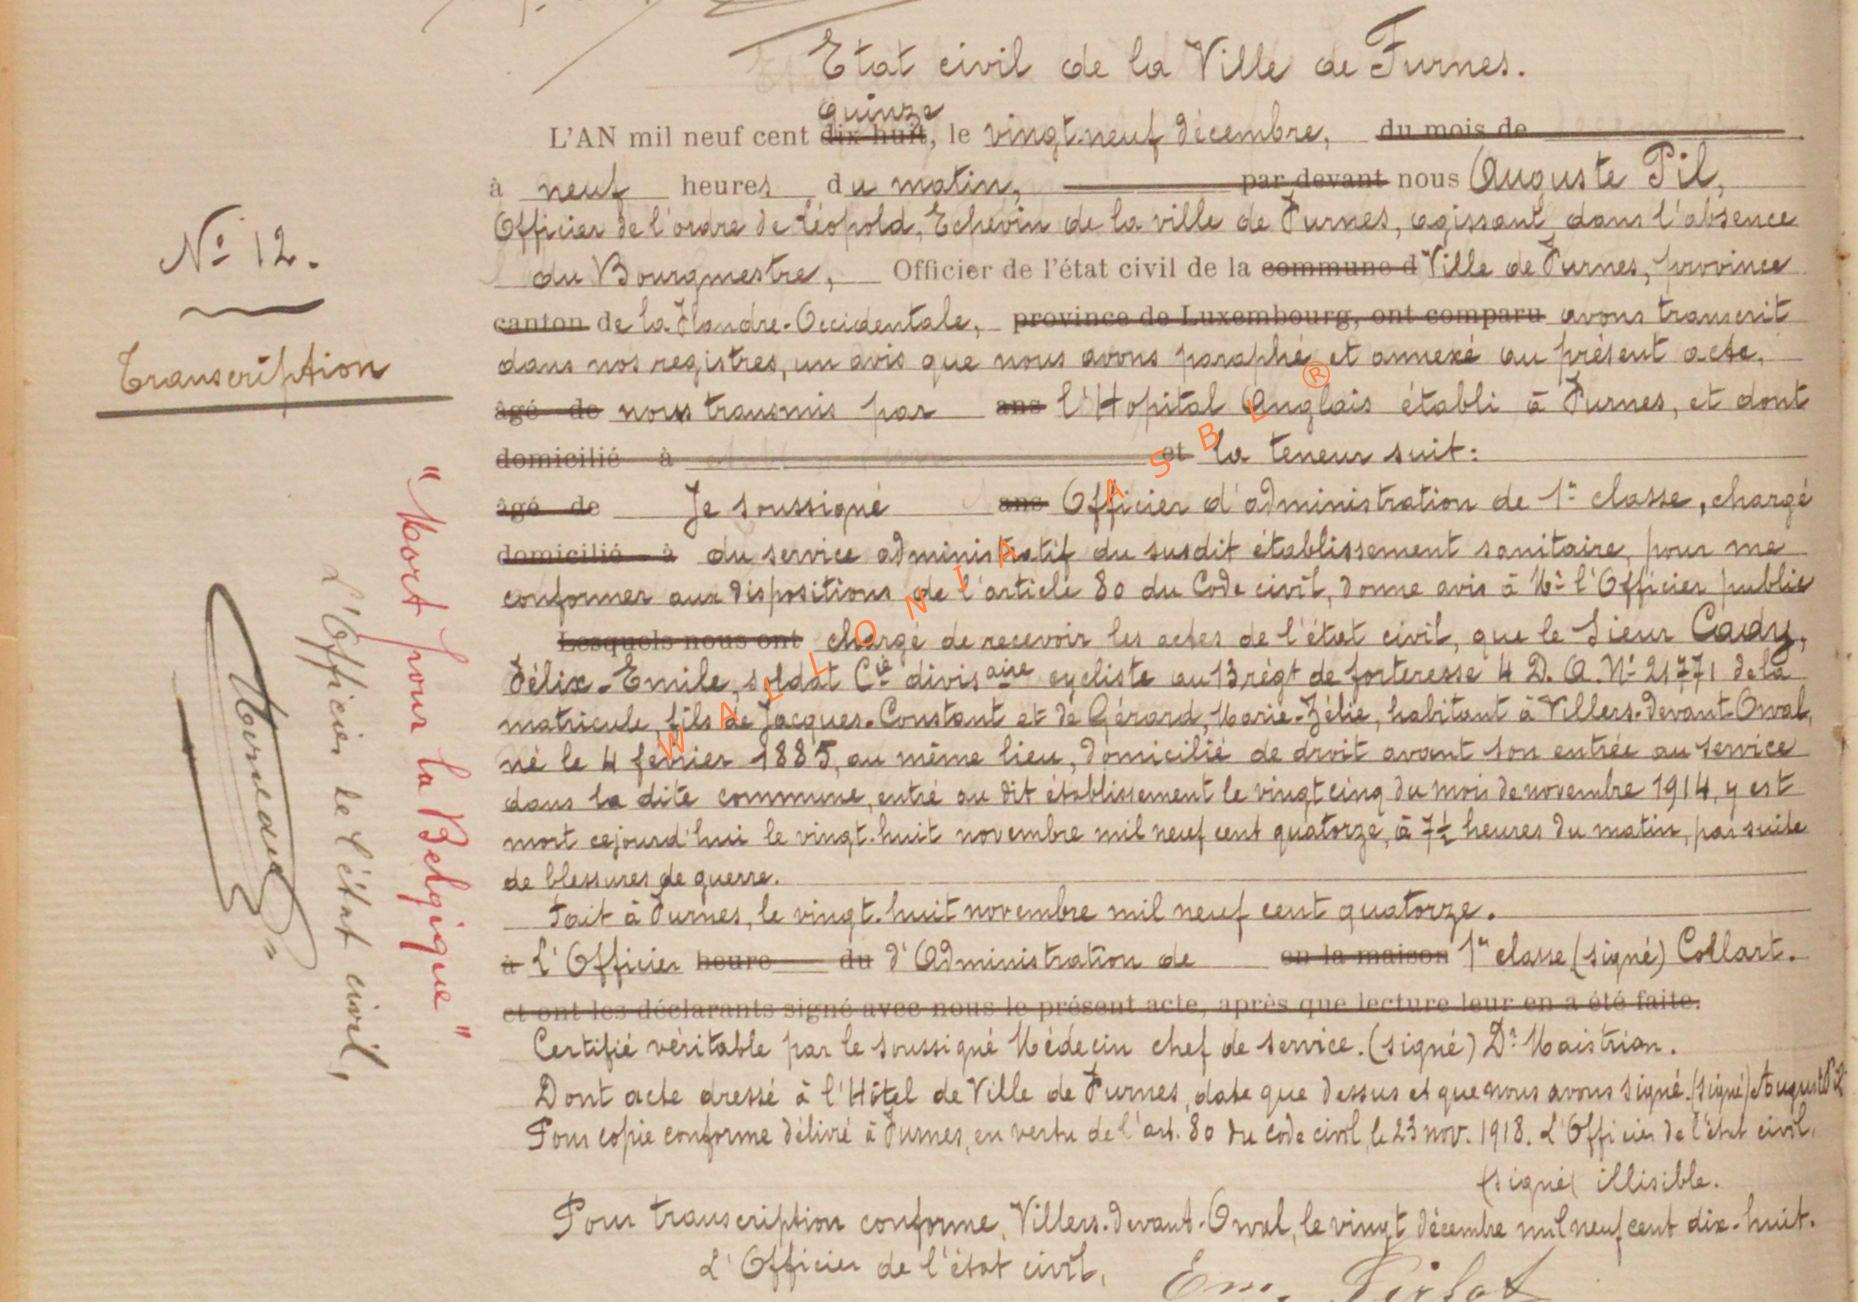 Etat civil de la Ville de Furnes.
quinze
L'AN mil neuf cent dix-huit, le vingt-neuf décembre, du mois de
à neuf heures du matin, par devant nous Auguste Pil,
Officier de l'ordre de Léopold, Echevin de la ville de Furnes, agissant dans l'absence
du Bourgmestre, Officier de l'état civil de la commune d Ville de Furnes, province
canton de la Flandre-Occidentale, province de Luxembourg, ont comparu avons transcrit
dans nos registres, un avis que nous avons paraphé et annexé au présent acte,
âgé de nous transmis par ans l'Hopital Anglais établi à Furnes, et dont
domicilié à et la teneur suit:
âgé de Je soussigné ans Officier d'administration de 1re classe, chargé
domicilié à du service administratif du susdit établissement sanitaire, pour me
conformer aux dispositions de l'article 80 du Code civil, donne avis à Mr l'Officier public
Lesquels nous ont chargé de recevoir les actes de l'état civil, que le Sieur Cady,
Félix-Emile, soldat Cie divisaire cycliste au 13 régt de forteresse 4 D. A. No 21771 de la
matricule, fils de Jacques-Constant et de Gérard, Marie-Zélie, habitant à Villers-devant-Orval,
né le 4 fevrier 1885, au même lieu, domicilié de droit avant son entrée au service
dans la dite commune, entré au dit établissement le vingt cinq du mois de novembre 1914, y est
mort cejourd'hui le vingt-huit novembre mil neuf cent quatorze, à 7½ heures du matin, par suite
de blessures de guerre.
Fait à Furnes, le vingt-huit novembre mil neuf cent quatorze.
à L'Officier heure du d'Administration de en la maison 1re classe (signé) Collart.
et ont les déclarants signé avec nous le présent acte, après que lecture leur en a été faite.
Certifié véritable par le soussigné Médecin chef de service. (signé) Dr Maistriau.
Dont acte dressé à l'Hôtel de Ville de Furnes, date que dessus et que nous avons signé. (signé) Auguste Pil
Pour copie conforme délivré à Furnes, en vertu de l'art. 80 du code civil, le 23 nov. 1918. L'Officier de l'état civil,
(signé) illisible.
Pour transcription conforme, Villers-devant-Orval, le vingt décembre mil neuf cent dix-huit.
L'Officier de l'état civil,
Em.
No 12.
Transcription
"Mort pour la Belgique"
L'Officier de l'état civil,
WALLONIA ASBL ®